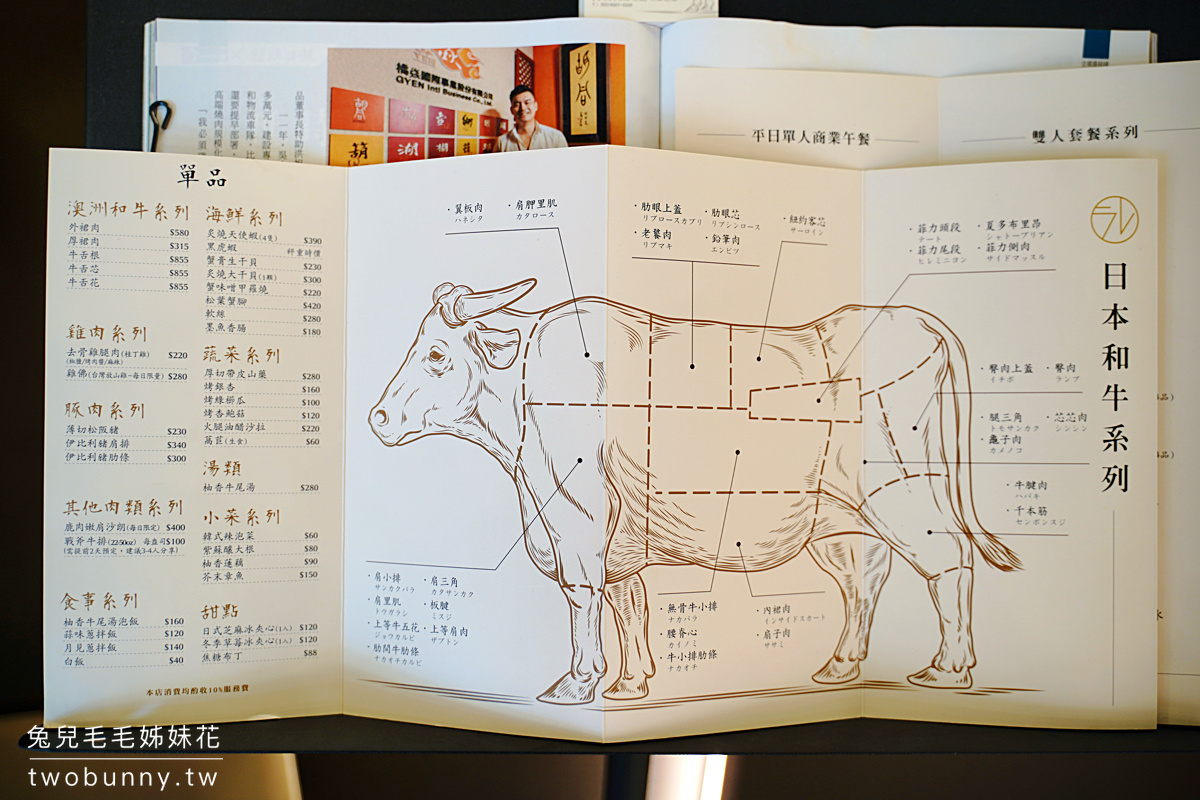 橘焱國際事業股份有限公司
GYEN Intl Business Co., Ltd.
胡同
平日單人商業午餐
雙人套餐系列
單品
澳洲和牛系列
外裙肉 $580
厚裙肉 $315
牛舌根 $855
牛舌芯 $855
牛舌花 $855
雞肉系列
去骨雞腿肉(桂丁雞) $220
(椒鹽/烤肉醬/麻辣)
雞佛(台灣放山雞-每日限量) $280
豚肉系列
薄切松阪豬 $230
伊比利豬肩排 $340
伊比利豬肋條 $300
其他肉類系列
鹿肉嫩肩沙朗(每日限定) $400
戰斧牛排(22-50oz) 每盎司$100
(需提前2天預定，建議3-4人分享)
食事系列
柚香牛尾湯泡飯 $160
蒜味蔥拌飯 $120
月見蔥拌飯 $140
白飯 $40
海鮮系列
炙燒天使蝦(4隻) $390
黑虎蝦 秤重時價
蟹膏生干貝 $230
炙燒大干貝(1顆) $300
蟹味噌甲羅燒 $220
松葉蟹腳 $420
軟絲 $280
墨魚香腸 $180
蔬菜系列
厚切帶皮山藥 $280
烤銀杏 $160
烤綠櫛瓜 $100
烤杏鮑菇 $120
火腿油醋沙拉 $220
萵苣(生食) $60
湯類
柚香牛尾湯 $280
小菜系列
韓式辣泡菜 $60
紫蘇釀大根 $80
柚香蓮藕 $90
芥末章魚 $150
甜點
日式芝麻冰夾心(1入) $120
冬季草莓冰夾心(1入) $120
焦糖布丁 $88
本店消費均酌收10%服務費
・翼板肉 ・肩胛里肌
ハネシタ カタロース
・肋眼上蓋 ・肋眼芯
リブロースカブリ リブシンロース
・老饕肉 ・鉛筆肉
リブマキ エンピツ
・紐約客芯
サーロイン
・菲力頭段 ・夏多布里昂
テート シャトーブリアン
・菲力尾段 ・菲力側肉
ヒレミニヨン サイドマッスル
日本和牛系列
・臀肉上蓋 ・臀肉
イチボ ランプ
・腿三角 ・芯芯肉
トモサンカク シンシン
・龜子肉
カメノコ
・牛腱肉
ハバキ
・千本筋
センボンスジ
・肩小排 ・肩三角
サンカクバラ カタサンカク
・肩里肌 ・板腱
トウガラシ ミスジ
・上等牛五花 ・上等肩肉
ジョウカルビ ザブトン
・肋間牛肋條
ナカオチカルビ
・無骨牛小排
ナカバラ
・腰脊心
カイノミ
・牛小排肋條
ナカオチ
・內裙肉
インサイドスカート
・扇子肉
ササミ
兔兒毛毛姊妹花
twobunny.tw